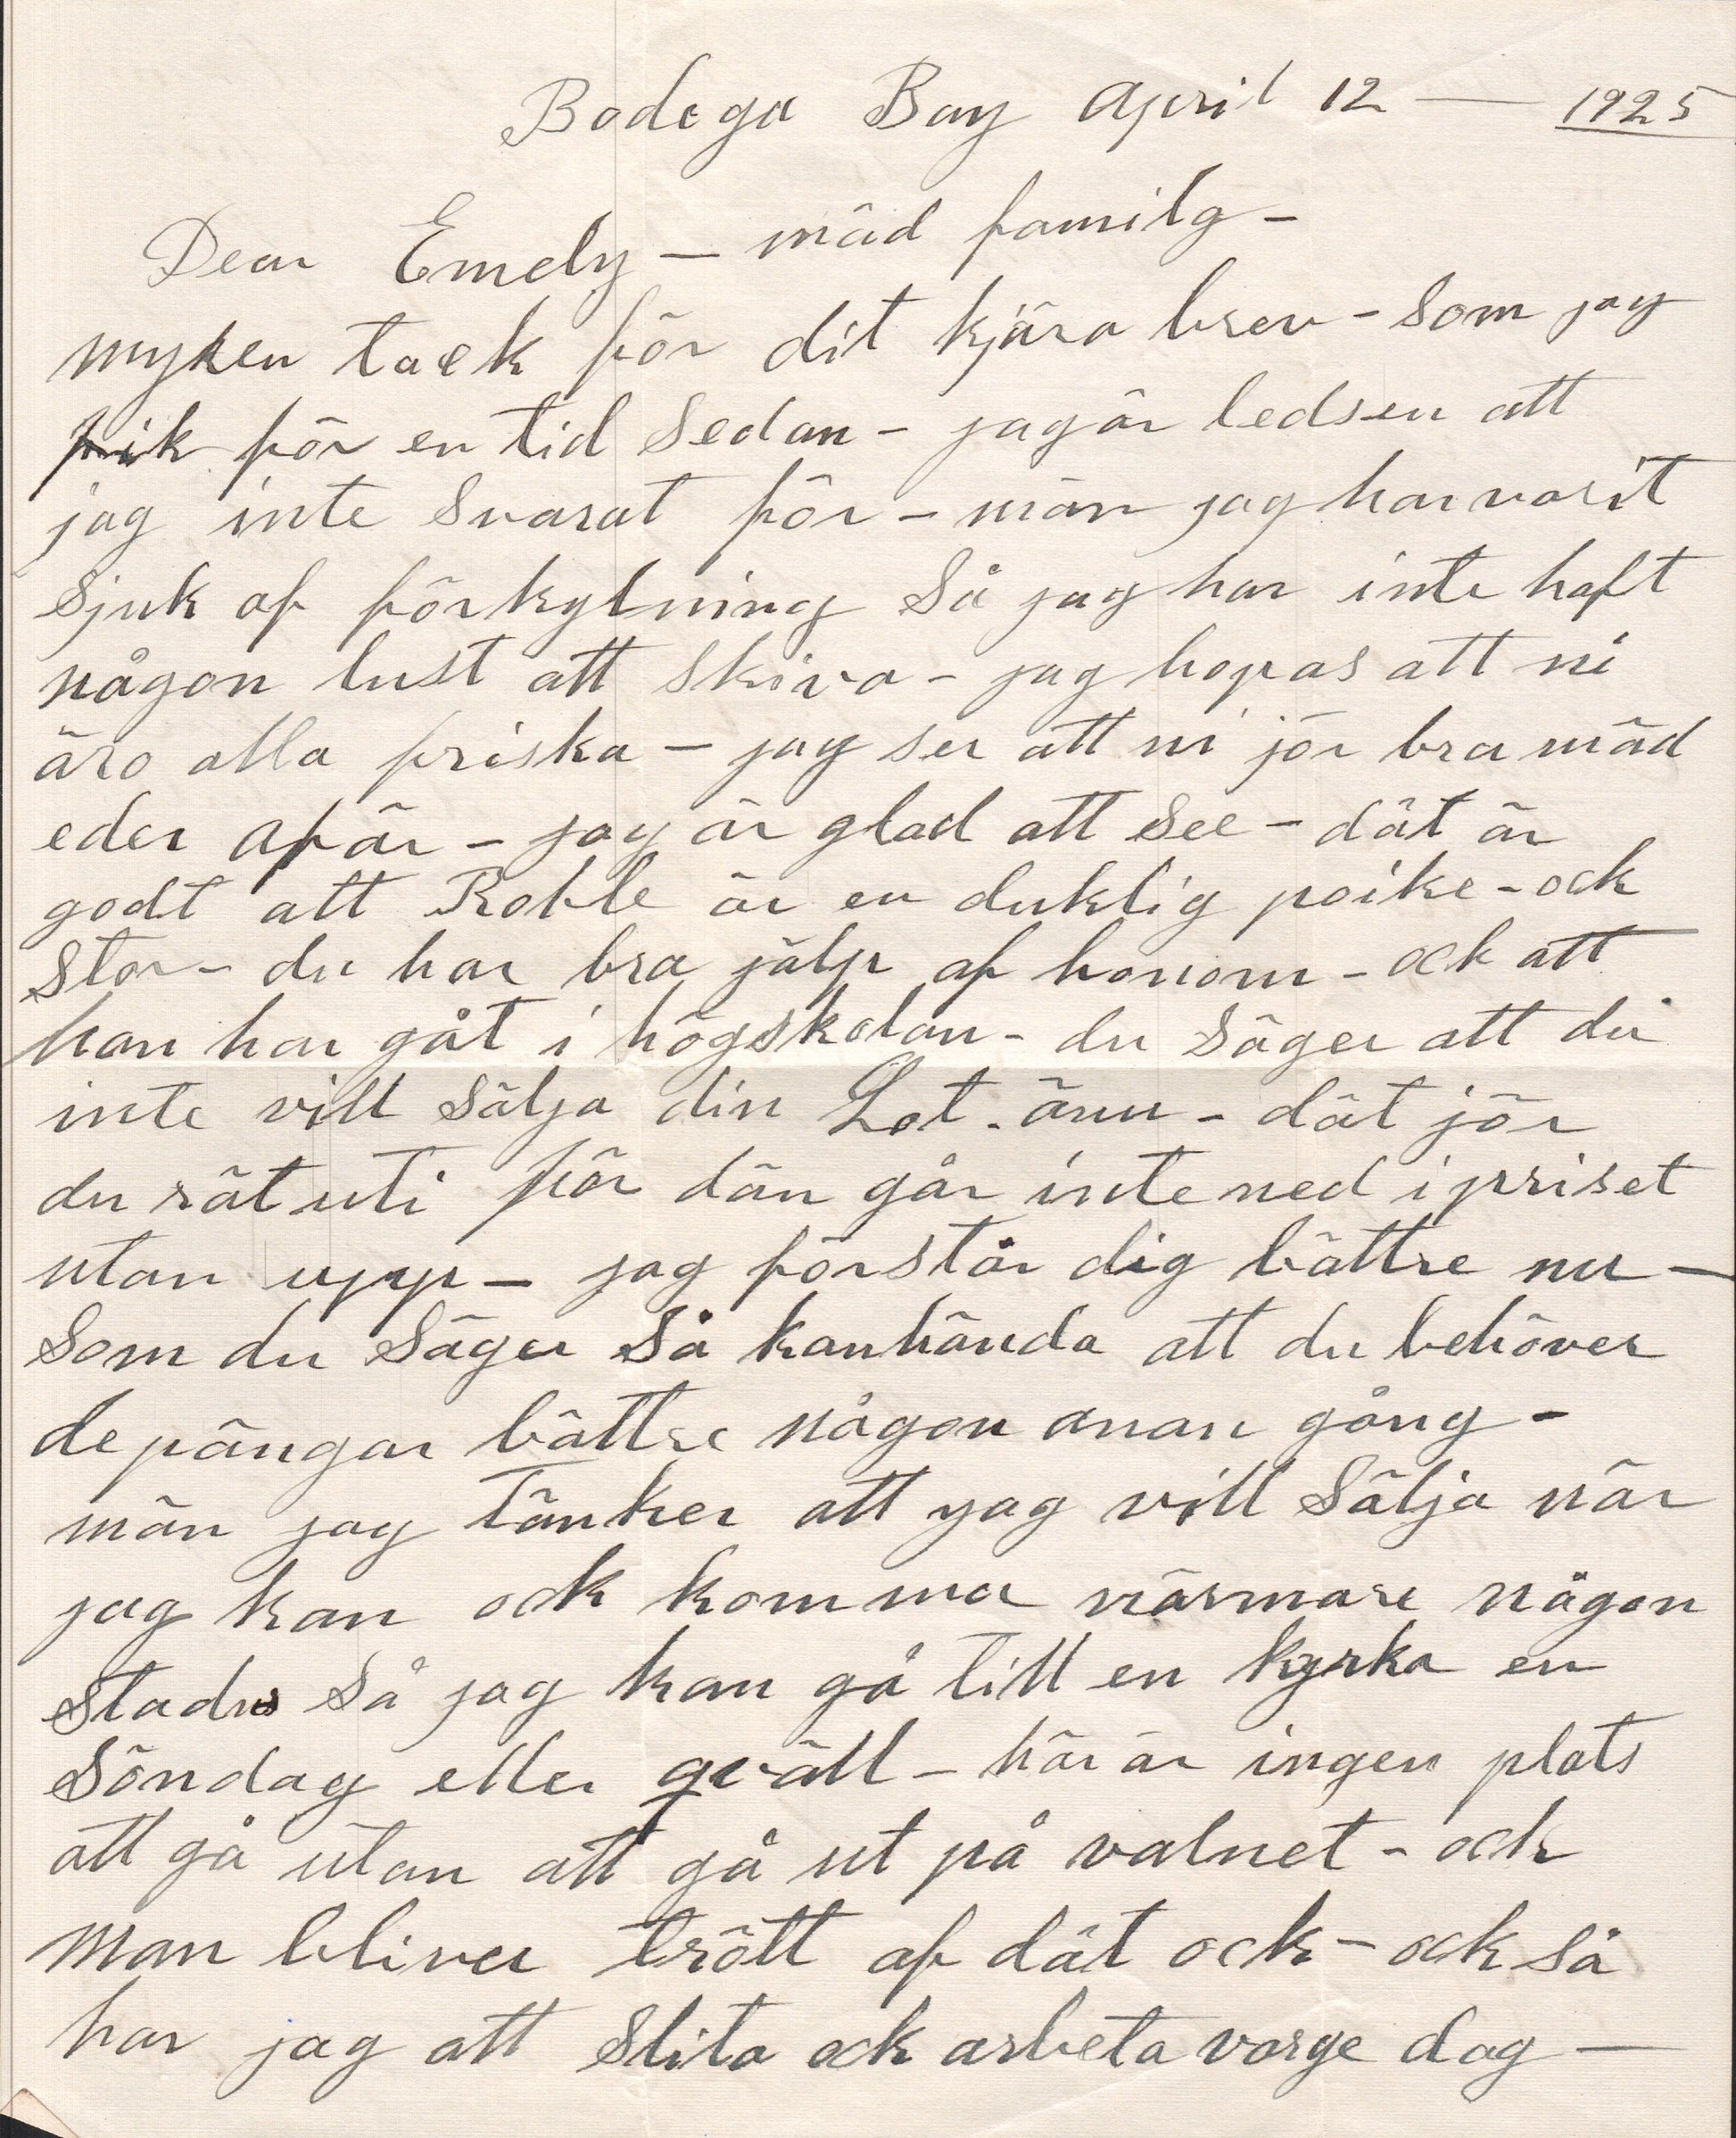 Bodega Bay April 12 — 1925
Dear Emely — mäd familg –
myken tack för dit kjära brev – som jag
fik för en tid sedan – jag är ledsen att
jag inte svarat för – män jag har varit
sjuk af förkylning så jag har inte haft
någon lust att skiva – jag hopas att ni
äro alla friska – jag ser att ni jör bra mäd
eder afär – jag är glad att see – dät är
godt att Roble är en duklig poike – ock
stor – du har bra jälp af honom – ock att
han har gåt i högskolan – du säger att du
inte vill sälja din Lot – änu – dät jör
du rät uti för dän går inte ned i priset
utan upp – jag förstår dig bättre nu —
som du säger så kanhända att du behöver
de pängar bättre någon anan gång –
män jag tänker att yag vill sälja när
jag kan ock komma närmare någon
stads så jag kan gå till en kyrka en
söndag eller qväll – här är ingen plats
att gå utan att gå ut på valnet – ock
man bliver trött af dät ock – ock så
har jag att slita ock arbeta varge dag —